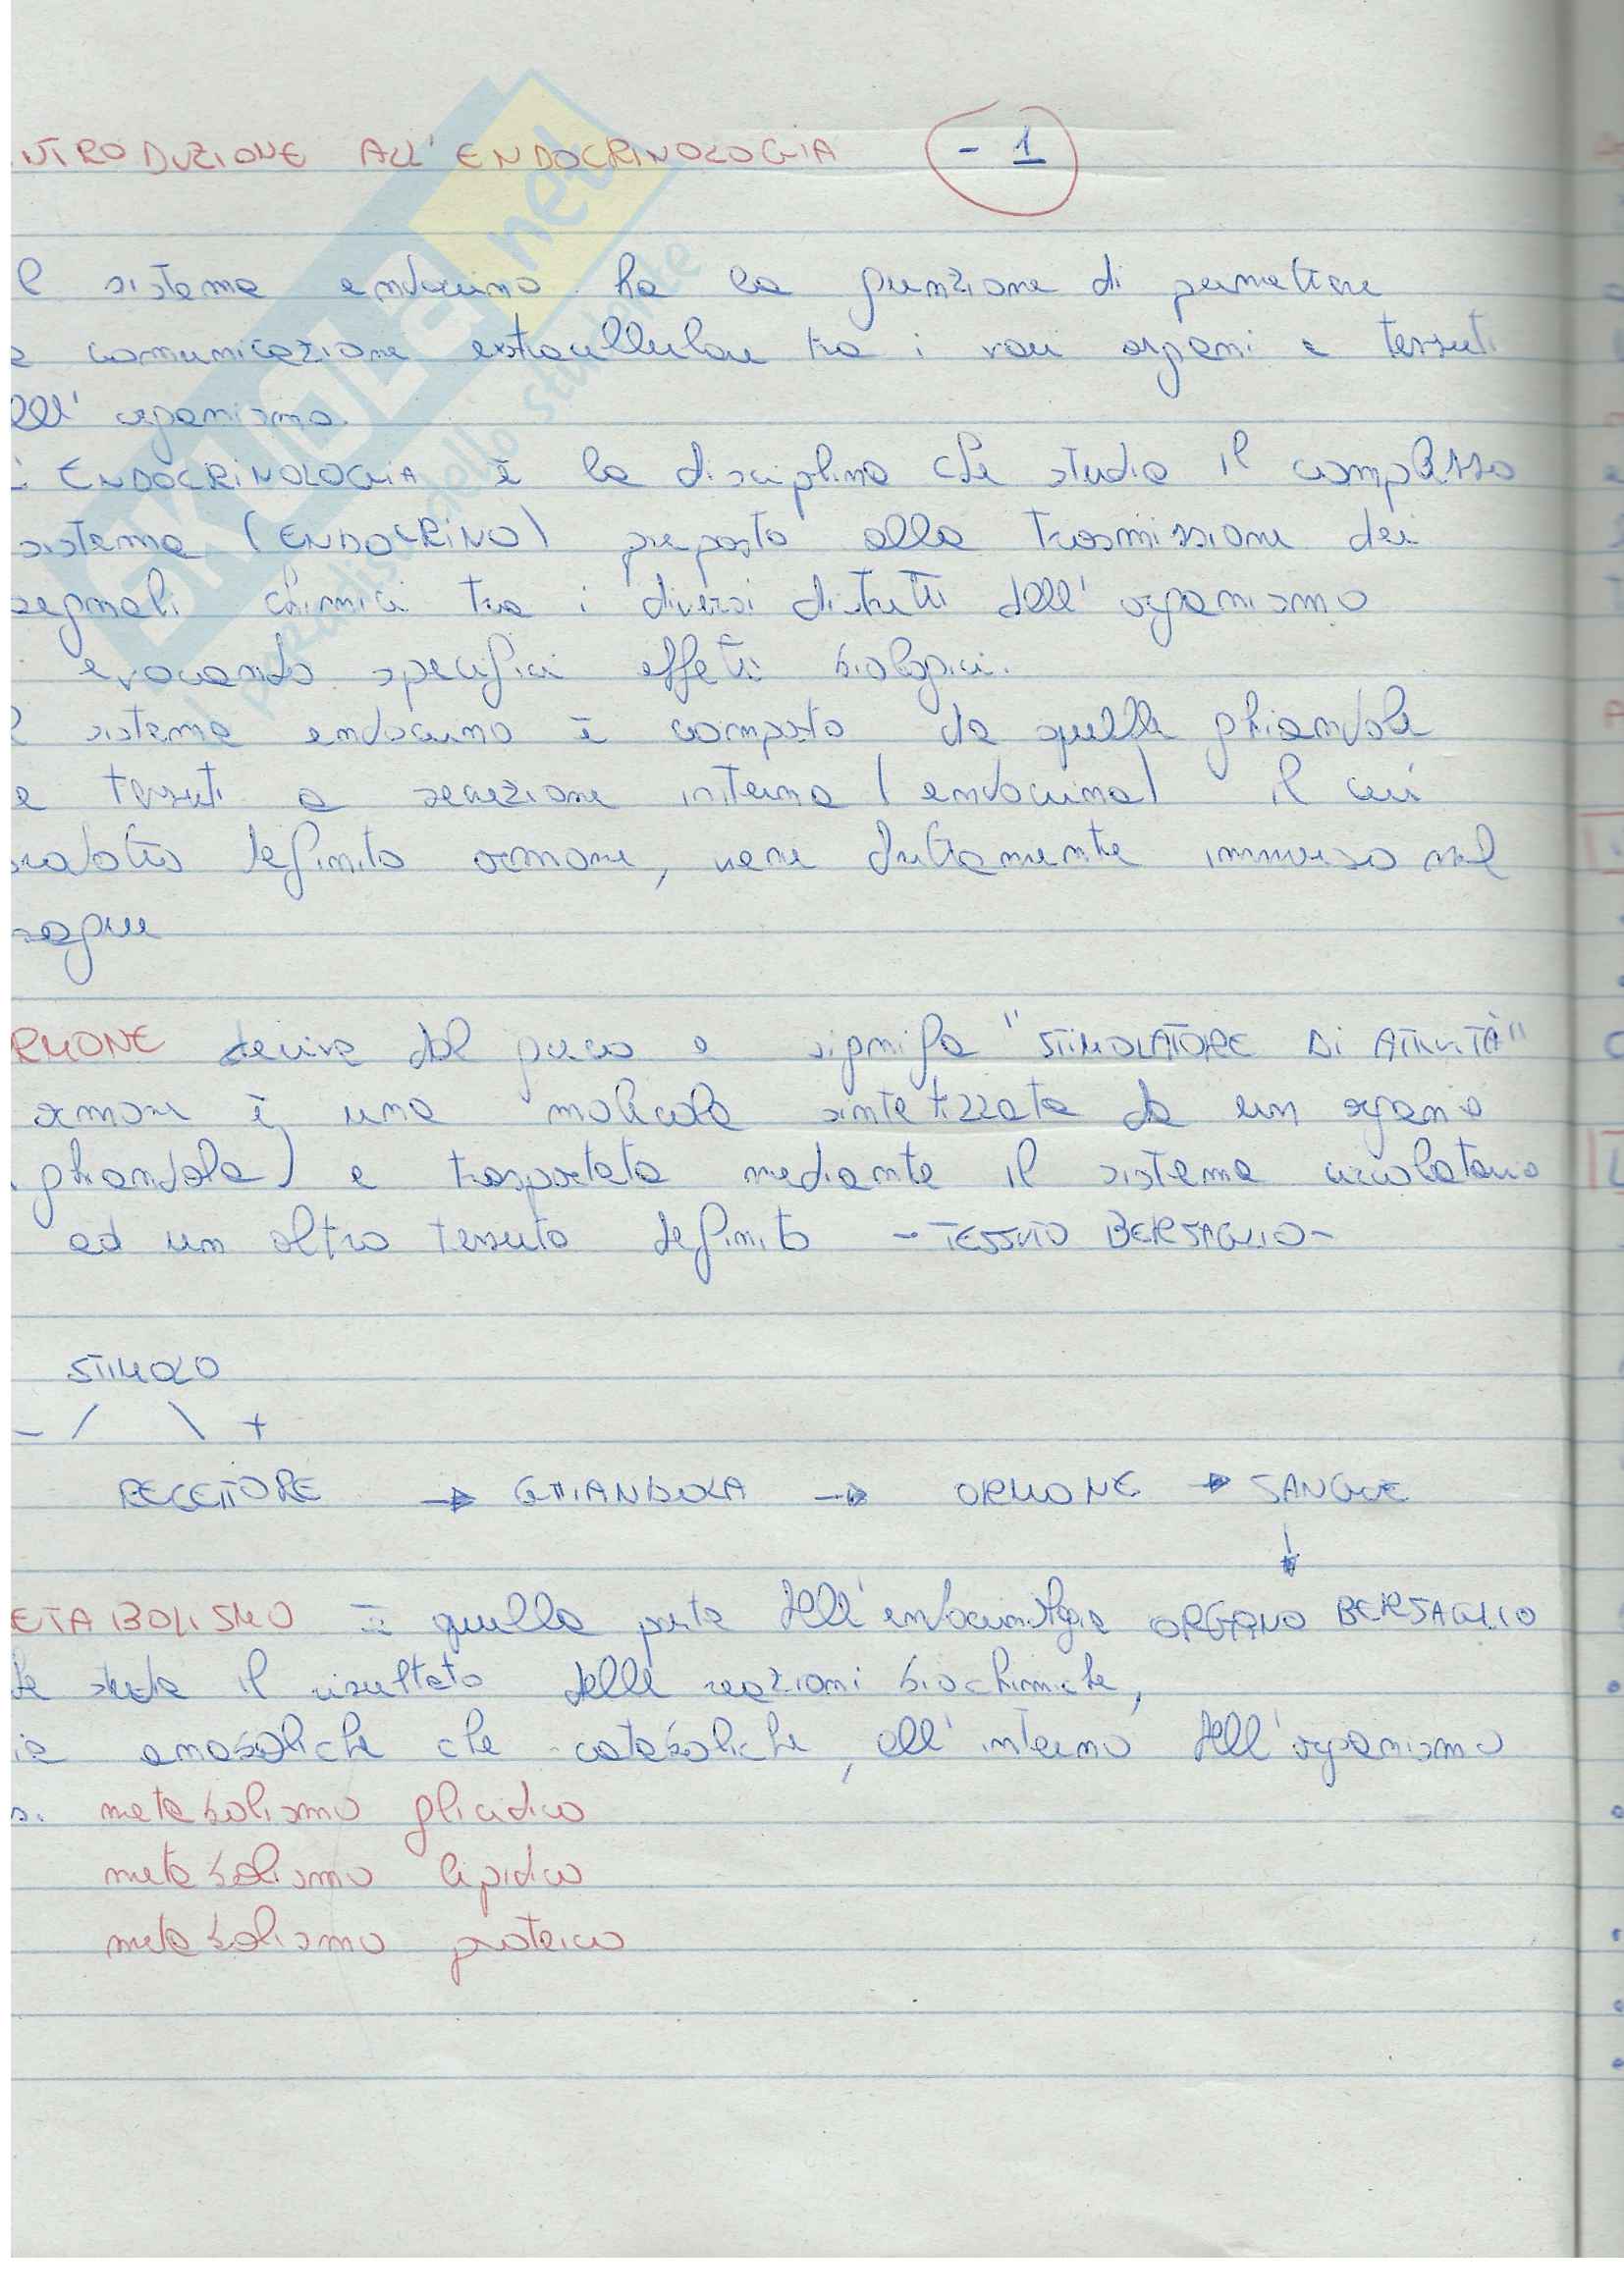 NTRODUZIONE ALL'ENDOCRINOLOGIA - 1
l sistema endocrino ha la funzione di permettere
a comunicazione extracellulare tra i vari organi e tessuti
ell'organismo.
ENDOCRINOLOGIA è la disciplina che studia il complesso
sistema (ENDOCRINO) preposto alla trasmissione dei
segnali chimici tra i diversi distretti dell'organismo
evocando specifici effetti biologici.
l sistema endocrino è composto da quelle ghiandole
e tessuti a secrezione interna (endocrina) il cui
rodotto definito ormone, viene direttamente immerso nel
sangue
RMONE deriva dal greco e significa "STIMOLATORE DI ATTIVITÀ"
ormone è una molecola sintetizzata da un organo
ghiandola) e trasportata mediante il sistema circolatorio
ad un altro tessuto definito - TESSUTO BERSAGLIO -
STIMOLO
- / \ +
RECETTORE → GHIANDOLA → ORMONE → SANGUE
↓
ORGANO BERSAGLIO
ETABOLISMO è quella parte dell'endocrinologia
he studia il risultato delle reazioni biochimiche,
ia anaboliche che cataboliche, all'interno dell'organismo
s. metabolismo glicidico
metabolismo lipidico
metabolismo proteico
SKUOLA.net
il paradiso dello studente